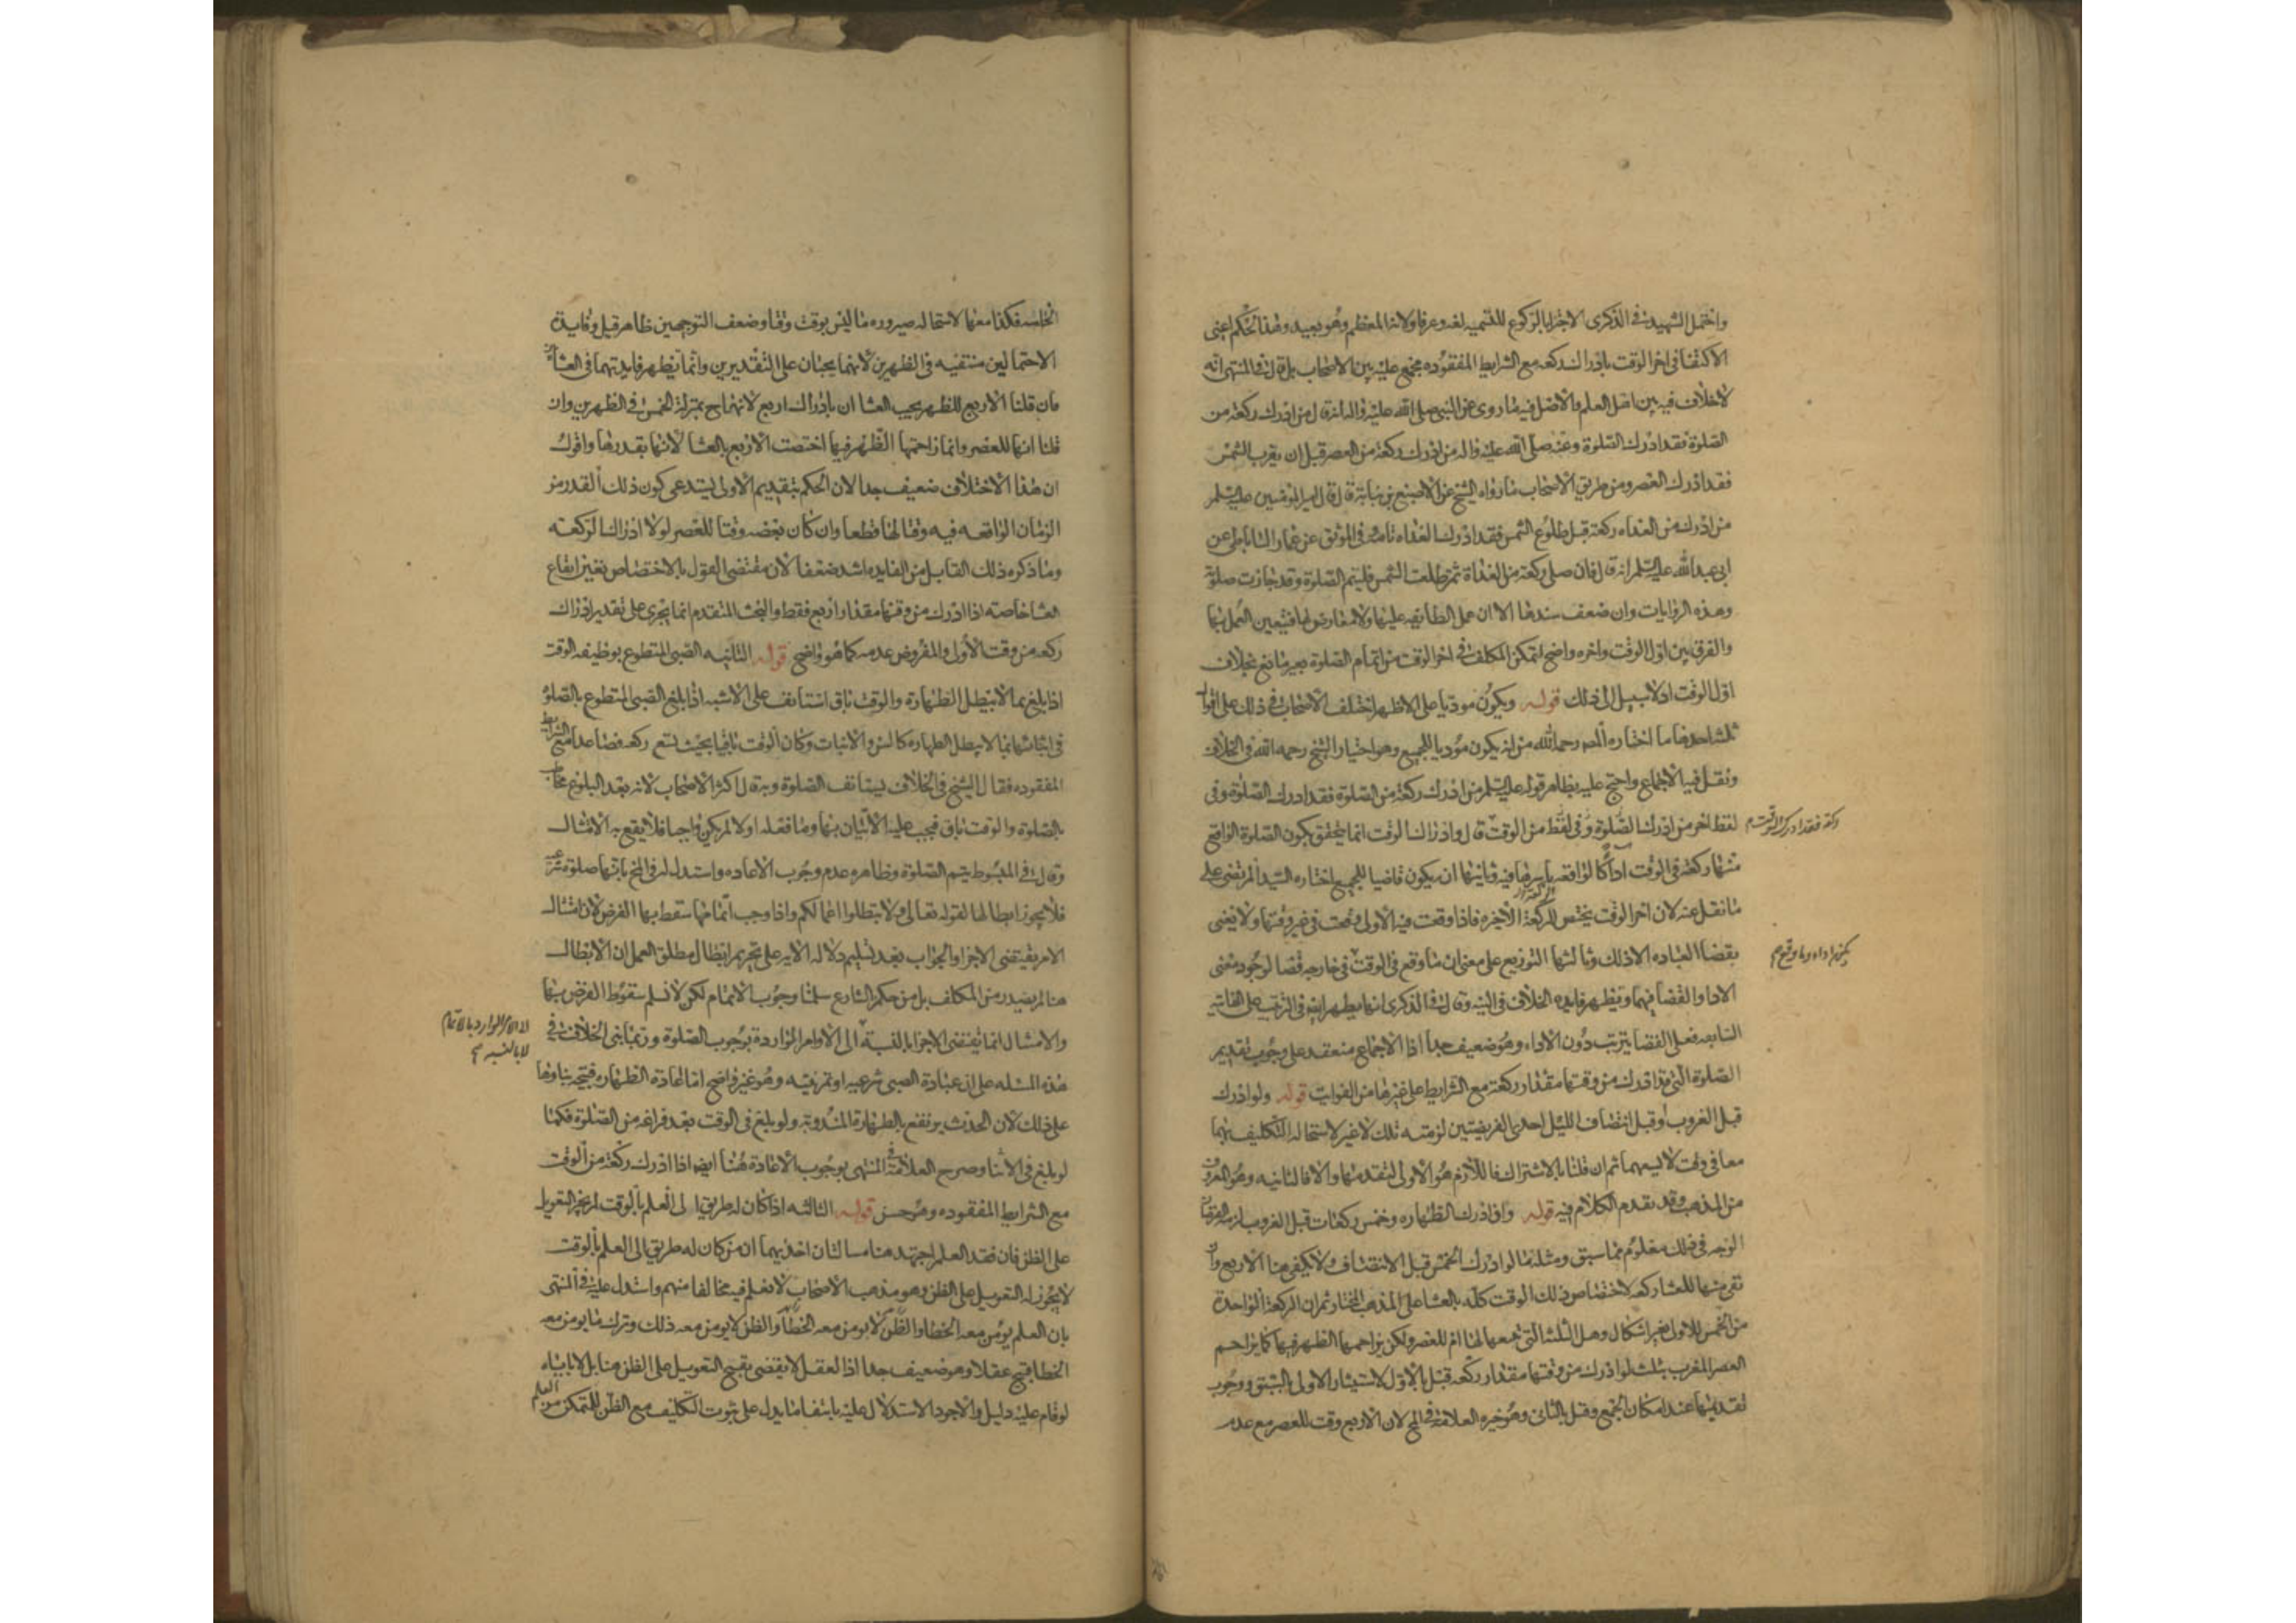 واحتمل الشهيد في الذكرى الاجتزا بالركوع للتسميه لغه وعرفا ولانه المعظم وهو بعيد وهذا الحكم اعنى
الاكتفا في اخر الوقت بادراك ركعه مع الشرايط المفقوده مجمع عليه بين الاصحاب بل قال في المنتهى انه
لا خلاف فيه بين اهل العلم والاصل فيه ما روى عن النبي صلى الله عليه واله انه قال من ادرك ركعة من
الصلوة فقد ادرك الصلوة وعنه صلى الله عليه واله من ادرك ركعة من العصر قبل ان يغرب الشمس
فقد ادرك العصر ومن طريق الاصحاب ما رواه الشيخ عن الاصبغ بن نباتة قال قال امير المؤمنين عليه السلم
من ادرك من الغداه ركعة قبل طلوع الشمس فقد ادرك الغداه تامة وفي الموثق عن عمار الساباطي عن
ابي عبد الله عليه السلم انه قال فان صلى ركعة من الغداة ثم طلعت الشمس فليتم الصلوة وقد جازت صلوته
وهذه الروايات وان ضعف سندها الا ان عمل الطايفه عليها ولا معارض لها فتيعين العمل بها
والفرق بين اول الوقت واخره واضح لتمكن المكلف في اخر الوقت من اتمام الصلوة بغير مانع بخلاف
اول الوقت اذ لا سبيل الى ذلك قوله ويكون موديا على الاظهر اختلف الاصحاب في ذلك على اقوال
ثلثه احدها ما اختاره المص رحمه الله من انه يكون موديا للجميع وهو اختيار الشيخ رحمه الله في الخلاف
ونقل فيه الاجماع واحتج عليه بظاهر قوله عليه السلم من ادرك ركعة من الصلوة فقد ادرك الصلوة وفي
لفظ اخر من ادرك الصلوة وفي لفظ من الوقت قال وادراك الوقت انما يتحقق بكون الصلوة الواقع
ركعة فقد ادرك الوقت
منها ركعة في الوقت اداً كالواقعه باسرها فيه وثانيها ان يكون قاضيا للجميع اختاره السيد المرتضى على
ما نقل عنه لان اخر الوقت يختص بالركعة الاخيره فاذا وقعت فيه الاولى وقعت في غير وقتها ولا يعنى
بقضا العباده الا ذلك وثالثها التوزيع على معنى ان ما وقع في الوقت في خارجه قضا لوجود معنى
يكون اداء وما وقع
الادا والقضا فيهما ويظهر فايده الخلاف في النيه وقال في الذكرى انها يظهر ايضا في الترتب على الفايته
السابعه فعلى القضا يترتب دون الاداء وهو ضعيف جدا اذا الاجماع منعقد على وجوب تقديم
الصلوة التي قد ادرك من وقتها مقدار ركعة مع الشرايط على غيرها من الفوايت قوله ولو ادرك
قبل الغروب او قبل انتصاف الليل احدى الفريضتين لزمته تلك لا غير لاستحاله التكليف بهما
معا في وقت لا يسعهما ثم ان قلنا بالاشتراك فاللازم هو الاولى لتقدمها والا فالثانيه وهو المعروف
من المذهب وقد تقدم الكلام فيه قوله وان ادرك الطهاره وخمس ركعات قبل الغروب لزمه الفرضان
الوجه في ذلك معلوم مما سبق ومثله ما لو ادرك الخمس قبل الانتصاف ولا يكفي هنا الاربع وان
بقى منها للعشا ركعه لاختصاص ذلك الوقت كله بالعشا على المذهب المختار ثم ان الركعة الواحدة
من الخمس للاولى بغير اشكال وهل الثلث التي تتبعها لها ام للعصر ولكن يزاحمها الظهر فيها كما يزاحم
العصر المغرب بثلث لو ادرك من وقتها مقدار ركعه قبل بالاول لاستيثار الاولى بالسبق ووجوب
تقديمها عند امكان الجمع وقيل بالثاني وهو خيره العلامة في المخ لان الاربع وقت للعصر مع عدم
الخامسه فكذا معها لاستحاله صيروره ما ليس بوقت وقتا وضعف التوجيهين ظاهر قيل وفايدة
الاحتمالين منتفيه في الظهرين لانهما يجبان على التقديرين وانما يظهر فايدتهما في العشائين
فان قلنا الاربع للظهر يجب العشا ان بادراك اربع لانها ح بمنزلة الخمس في الظهرين وان
قلنا انها للعصر وانما زاحمها الظهر فيها اختصت الاربع بالعشا لانها بقدرها واقول
ان هذا الاختلاف ضعيف جدا لان الحكم بتقديم الاولى يستدعى كون ذلك القدر من
الزمان الواقعه فيه وقتا لها قطعا وان كان بعضه وقتا للعصر لولا ادراك الركعه
وما ذكره ذلك القايل من الفايده اشد ضعفا لان مقتضى القول بالاختصاص تعين ايقاع
العشا خاصه اذا ادرك من وقتها مقدار اربع فقط والبحث المتقدم انما يجرى على تقدير ادراك
ركعه من وقت الاولى والمفروض عدمه كما هو واضح قوله الثانيه الصبى المتطوع بوظيفه الوقت
اذا بلغ بما لا يبطل الطهارة والوقت باق استانف على الاشبه اذا بلغ الصبى المتطوع بالصلوة
في اثنائها بما لا يبطل الطهاره كالسن والانبات وكان الوقت باقيا بحيث يسع ركعه فصاعدا مع الشرايط
المفقوده فقال الشيخ في الخلاف يستانف الصلوة وبه قال اكثر الاصحاب لانه بعد البلوغ مخاطب
بالصلوة والوقت باق فيجب عليه الاتيان بها وما فعله اولا لم يكن واجبا فلا يقع به الامتثال
وقال في المبسوط يتم الصلوة وظاهره عدم وجوب الاعاده واستدل له في المخ بانها صلوة شرعيه
فلا يجوز ابطالها لقوله تعالى ولا تبطلوا اعمالكم واذا وجب اتمامها سقط بها الفرض لان امتثال
الامر يقتضى الاجزا والجواب بعد تسليم دلاله الايه على تحريم ابطال مطلق العمل ان الابطال
هنا لم يصدر من المكلف بل من حكم الشارع سلمنا وجوب الاتمام لكن لا نسلم سقوط الفرض بها
والامتثال انما يقتضى الاجزا بالنسبة الى الاوامر الواردة بوجوب الصلوة وربما بنى الخلاف في
الى الامر الوارد بالاتمام
لا بالنسبه
هذه المسئله على ان عبادة الصبى شرعيه او تمرينيه وهو غير واضح اما اعادة الطهاره فيتجه بناوها
على ذلك لان الحدث يرتفع بالطهارة المندوبة ولو بلغ في الوقت بعد فراغه من الصلوة فكما
لو بلغ في الاثنا وصرح العلامة في المنتهى بوجوب الاعادة هنا ايضا اذا ادرك ركعة من الوقت
مع الشرايط المفقوده وهو حسن قوله الثالثه اذا كان له طريق الى العلم بالوقت لم يجز التعويل
على الظن فان فقد العلم اجتهد هنا مسالتان احديهما ان من كان له طريق الى العلم بالوقت
لا يجوز له التعويل على الظن وهو مذهب الاصحاب لا نعلم فيه مخالفا منهم واستدل عليه في المنتهى
بان العلم يؤمن معه الخطا والظن لا يومن معه الخطأ والظن لا يومن معه ذلك وترك ما يومن معه
الخطا قبيح عقلا وهو ضعيف جدا اذ العقل لا يقضى بقبح التعويل على الظن هنا بل لا ياباه
لو قام عليه دليل والاجود الاستدلال عليه بانتفا ما يدل على ثبوت التكليف مع الظن للمتمكن من العلم